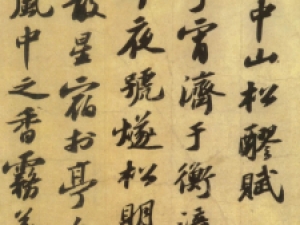 中山松醪賦
宵濟于衡漳
夜號燧松明
散星宿扵亭
風中之香霧